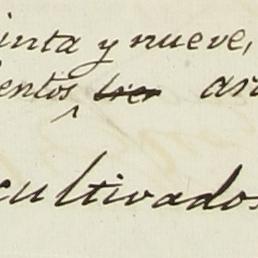 inta y nueve,
entos tres ar
cultivados